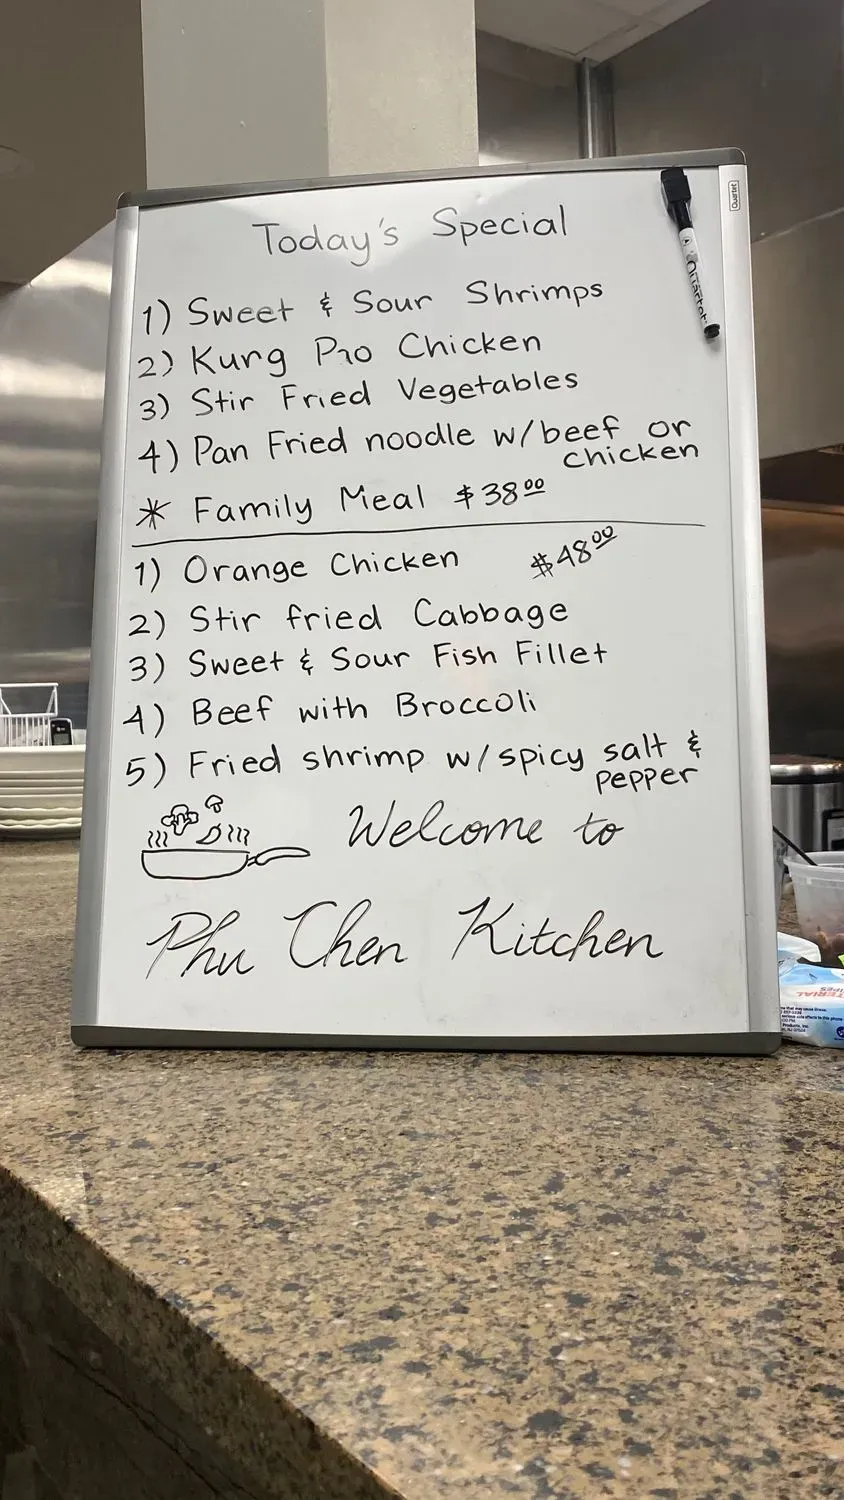 Today's Special
1) Sweet & Sour Shrimps
2) Kung Pao Chicken
3) Stir Fried Vegetables
4) Pan Fried noodle w/beef or
chicken
* Family Meal $38.00
1) Orange Chicken $48.00
2) Stir fried Cabbage
3) Sweet & Sour Fish Fillet
4) Beef with Broccoli
5) Fried shrimp w/spicy salt &
pepper
Welcome to
Phu Chen Kitchen
Quartet
Quartet